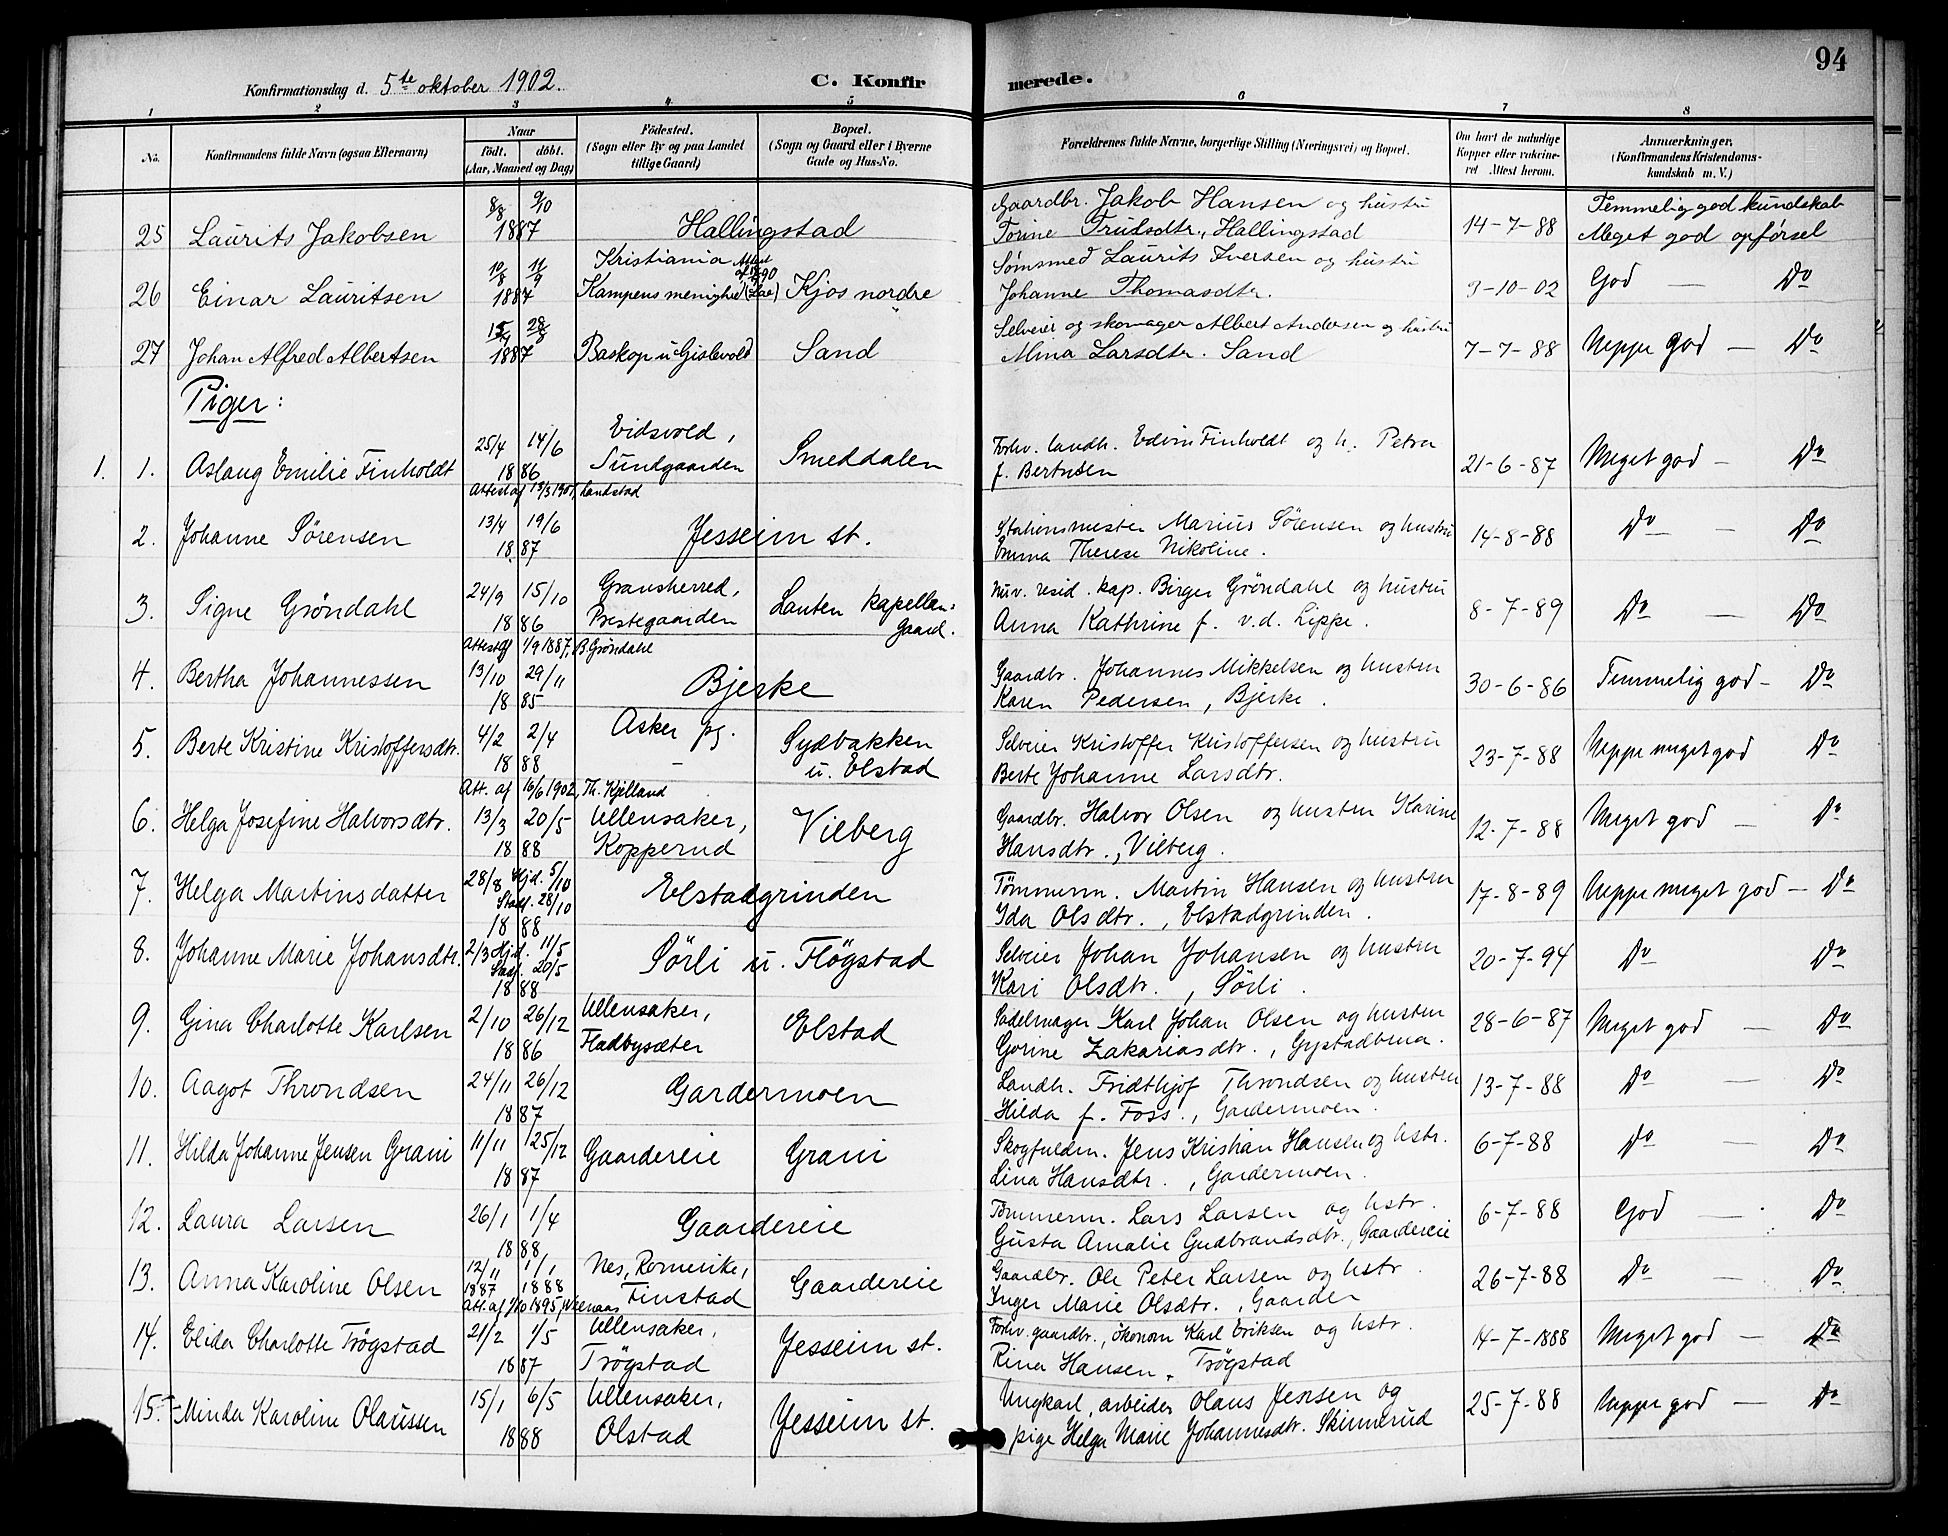 94
Konfirmationsdag d. 5te oktober 1902.
C. Konfirmerede.
1 2 3 4 5 6 7 8
No.
Konfirmandens fulde Navn (ogsaa Efternavn)
Naar
födt. döbt.
(Aar, Maaned og Dag)
Födested.
(Sogn eller By og paa Landet
tillige Gaard)
Bopæl.
(Sogn og Gaard eller i Byerne
Gade og Hus-No.
Forældrenes fulde Navne, borgerlige Stilling (Næringsvei) og Bopæl.
Om havt de naturlige
Kopper eller vakcine-
ret Attest herom.
Anmærkninger,
(Konfirmandens Kristendoms-
kundskab m. V.)
25 Laurits Jakobsen 8/8 9/10 1887 Hallingstad Gaardbr. Jakob Hansen og hustru
Torine Trulsdtr., Hallingstad 14-7-88 Temmelig god kundskab
Meget god opførsel
26 Einar Lauritsen 10/8 11/9 1887 Kristiania
Kampens menighed Kjos nordre Sømsmed Laurits Iversen og hustru
Johanne Thomasdtr. 3-10-02 God — Do
27 Johan Alfred Albertsen 28/8 1887 Baskop u Gislevold Sand Selveier og skomager Albert Andersen og hustru
Alma Larsdtr. Sand 7-7-88 Neppe god — Do
Piger:
1. 1. Aslaug Emilie Finholdt 25/4 14/6 1886 Eidsvold,
Sundgaarden Smeddalen Forhv. landh. Edvin Finholdt og h. Petra
f. Berntsen 21-6-87 Meget god — Do
Attest af 18/3 1901, Landstad
2. Johanne Sørensen 13/4 19/6 1887 Jesseim st. Stationsmester Marius Sørensen og hustru
Emma Therese Nikoline. 14-8-88 Do — Do
3. Signe Grøndahl 24/9 15/10 1886 Gransherred,
Prestegaarden Lauten kapellan-
gaard. Nuv. resid. kap. Birger Grøndahl og hustru
Anna Kathrine f. v.d. Lippe. 8-7-89 Do — Do
Attest af 1/9 1887, B. Grøndahl
4. Bertha Johannessen 13/10 29/11 1885 Bjerke Gaardbr. Johannes Mikkelsen og hustru
Karen Pedersen, Bjerke. 30-6-86 Temmelig god — Do
5. Berte Kristine Kristoffersdtr. 4/2 2/4 1888 Asker pg.
— Sydbakken
u. Elstad Selveier Kristoffer Kristoffersen og hustru
Berte Johanne Larsdtr. 23-7-88 Neppe meget god Do
Att. af 16/6 1902, Th. Kjelland
6. Helga Josefine Halvorsdtr. 13/3 20/5 1888 Ullensaker,
Kopperud Vilberg Gaardbr. Halvor Olsen og hustru Karine
Hansdtr., Vilberg. 12-7-88 Meget god — Do
7. Helga Martinsdatter 28/8 Hjd. 5/10
Stadf. 28/10 1888 Elstadgrinden Tømmerm. Martin Hansen og hustru
Ida Olsdtr., Elstadgrinden. 17-8-89 Neppe meget god — Do
8. Johanne Marie Johansdtr. 2/3 Hjd. 11/5
Stadf. 20/5 1888 Sörli u. Flögstad Selveier Johan Johansen og hustru
Kari Olsdtr., Sörli. 20-7-94 Do Do
9. Gina Charlotte Karlsen 2/10 26/12 1886 Ullensaker,
Fladbysæter Elstad Sadelmager Karl Johan Olsen og hustru
Gorine Zakariasdtr., Gystadbma. 28-6-87 Meget god — Do
10. Aagot Throndsen 24/11 26/12 1887 Gardermoen Landh. Fridthjof Throndsen og hustru
Hilda f. Foss., Gardermoen. 13-7-88 Do — Do
11. Hilda Johanne Jensen Grani 11/11 25/12 1887 Gaardereie Grani Skogfuldm. Jens Kristian Hansen og hstr.
Lina Hansdtr., Gardermoen. 6-7-88 Do — Do
12. Laura Larsen 26/1 1/4 1888 Gaardereie Tömmerm. Lars Larsen og hstr.
Gusta Amalie Gudbrandsdtr., Gaardereie 6-7-88 God — Do
13. Anna Karoline Olsen 12/11 1887 1/1 1888 Nes, Romerike,
Finstad Gaardereie Gaardbr. Ole Peter Larsen og hstr.
Inger Marie Olsdtr., Gaarder 26-7-88 Do — Do
Att. af 1/10 1895,
14. Elida Charlotte Trögstad 21/2 1/5 1887 Ullensaker,
Trögstad Jesseim st. Forhv. gaardbr., økonom Karl Eriksen og hstr.
Rina Hansen, Trögstad 14-7-1888 Meget god — Do
15. Minda Karoline Olaussen 15/1 6/5 1888 Ullensaker,
Olstad Jesseim st. Ungkarl, arbeider Olaus Jensen og
pige Helga Marie Johannesdtr. Skinnerud 25-7-88 Neppe god — Do